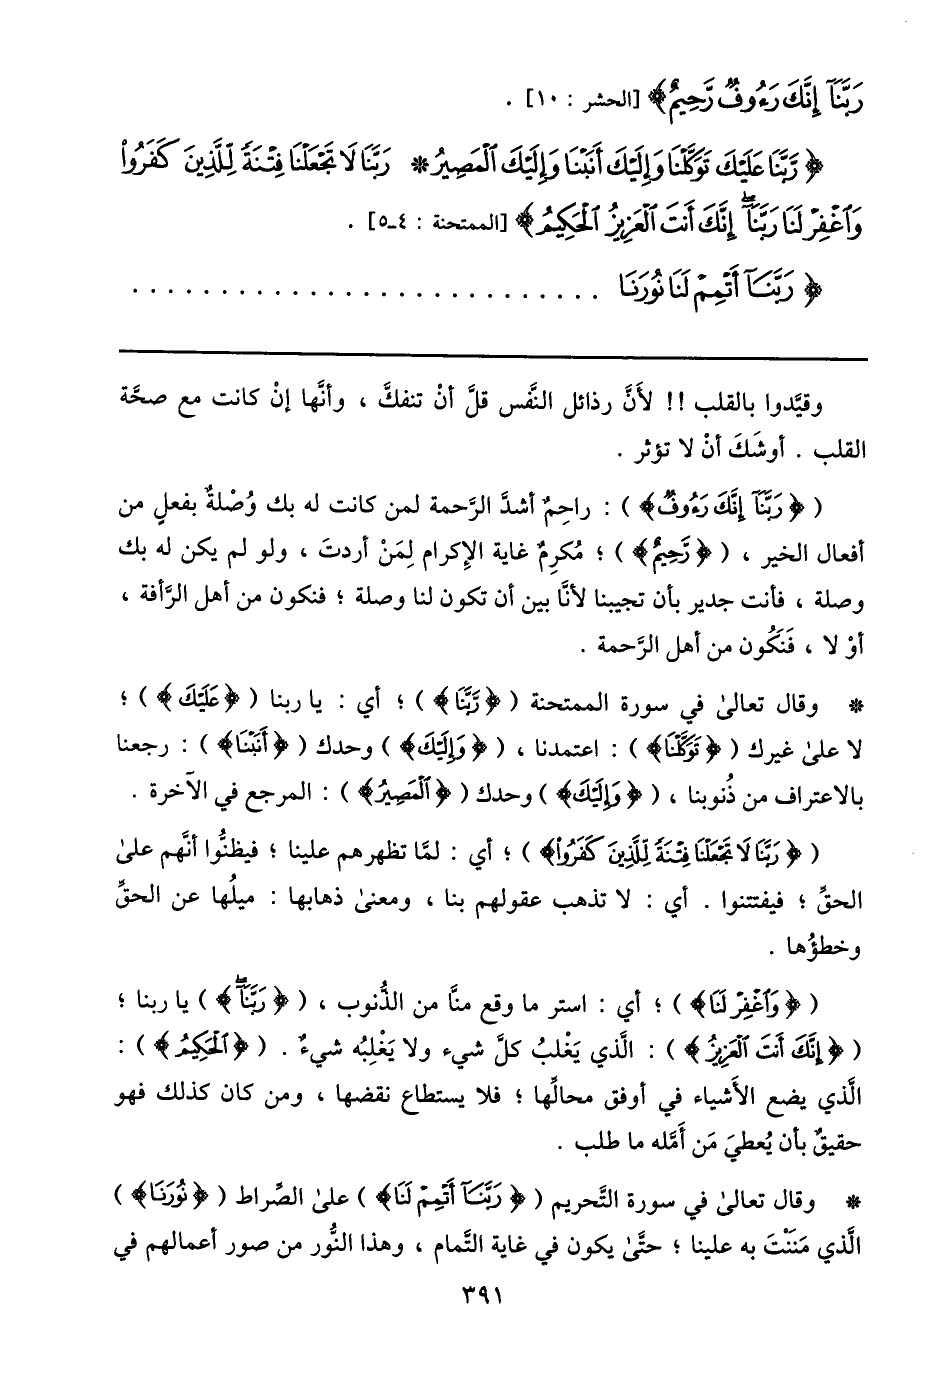 رَبَّنَآ إِنَّكَ رَءُوفٌ رَّحِيمٌ﴾ [الحشر : ١٠] .
﴿ رَّبَّنَا عَلَيْكَ تَوَكَّلْنَا وَإِلَيْكَ أَنَبْنَا وَإِلَيْكَ ٱلْمَصِيرُ * رَبَّنَا لَا تَجْعَلْنَا فِتْنَةً لِّلَّذِينَ كَفَرُوا۟
وَٱغْفِرْ لَنَا رَبَّنَآ ۖ إِنَّكَ أَنتَ ٱلْعَزِيزُ ٱلْحَكِيمُ ﴾ [الممتحنة : ٤ـ٥] .
﴿ رَبَّنَآ أَتْمِمْ لَنَا نُورَنَا . . . . . . . . . . . . . . . . . . . . . . . . . . .
وقيَّدوا بالقلب !! لأَنَّ رذائل النَّفس قلَّ أنْ تنفكَّ ، وأنَّها إنْ كانت مع صحَّة
القلب . أوشَكَ أنْ لا تؤثر .
( ﴿ رَبَّنَآ إِنَّكَ رَءُوفٌ﴾ ) : راحِمٌ أشدَّ الرَّحمة لمن كانت له بك وُصْلةٌ بفعلٍ من
أفعال الخير ، ( ﴿ رَّحِيمٌ﴾ ) ؛ مُكرِمٌ غاية الإكرام لِمَنْ أردتَ ، ولو لم يكن له بك
وصلة ، فأنت جدير بأن تجيبنا لأنَّا بين أن تكون لنا وصلة ؛ فنكون من أهل الرَّأفة ،
أوْ لا ، فَنَكُون من أهل الرَّحمة .
* وقال تعالىٰ في سورة الممتحنة ( ﴿ رَّبَّنَا﴾ ) ؛ أي : يا ربنا ( ﴿عَلَيْكَ ﴾ ) ؛
لا علىٰ غيرك ( ﴿ تَوَكَّلْنَا﴾ ) : اعتمدنا ، ( ﴿ وَإِلَيْكَ﴾ ) وحدك ( ﴿أَنَبْنَا﴾ ) : رجعنا
بالاعتراف من ذُنوبنا ، ( ﴿ وَإِلَيْكَ﴾ ) وحدك ( ﴿ ٱلْمَصِيرُ﴾ ) : المرجع في الآخرة .
( ﴿ رَبَّنَا لَا تَجْعَلْنَا فِتْنَةً لِّلَّذِينَ كَفَرُوا۟﴾ ) ؛ أي : لمَّا تظهرهم علينا ؛ فيظنُّوا أنَّهم علىٰ
الحقِّ ؛ فيفتتنوا . أي : لا تذهب عقولهم بنا ، ومعنىٰ ذهابها : ميلُها عن الحقِّ
وخطؤُها .
( ﴿ وَٱغْفِرْ لَنَا﴾ ) ؛ أي : استر ما وقع منَّا من الذُّنوب ، ( ﴿ رَبَّنَآ ۖ﴾ ) يا ربنا ؛
( ﴿ إِنَّكَ أَنتَ ٱلْعَزِيزُ ﴾ ) : الَّذي يَغْلبُ كلَّ شيء ولا يَغْلِبُه شيءٌ . ( ﴿ٱلْحَكِيمُ ﴾ ) :
الَّذي يضع الأَشياء في أوفق محالِّها ؛ فلا يستطاع نقضها ، ومن كان كذلك فهو
حقيقٌ بأن يُعطيَ مَن أمَّله ما طلب .
* وقال تعالىٰ في سورة التَّحريم ( ﴿ رَبَّنَآ أَتْمِمْ لَنَا﴾ ) علىٰ الصِّراط ( ﴿ نُورَنَا﴾ )
الَّذي مَنَنْتَ به علينا ؛ حتَّىٰ يكون في غاية التَّمام ، وهذا النُّور من صور أعمالهم في
٣٩١